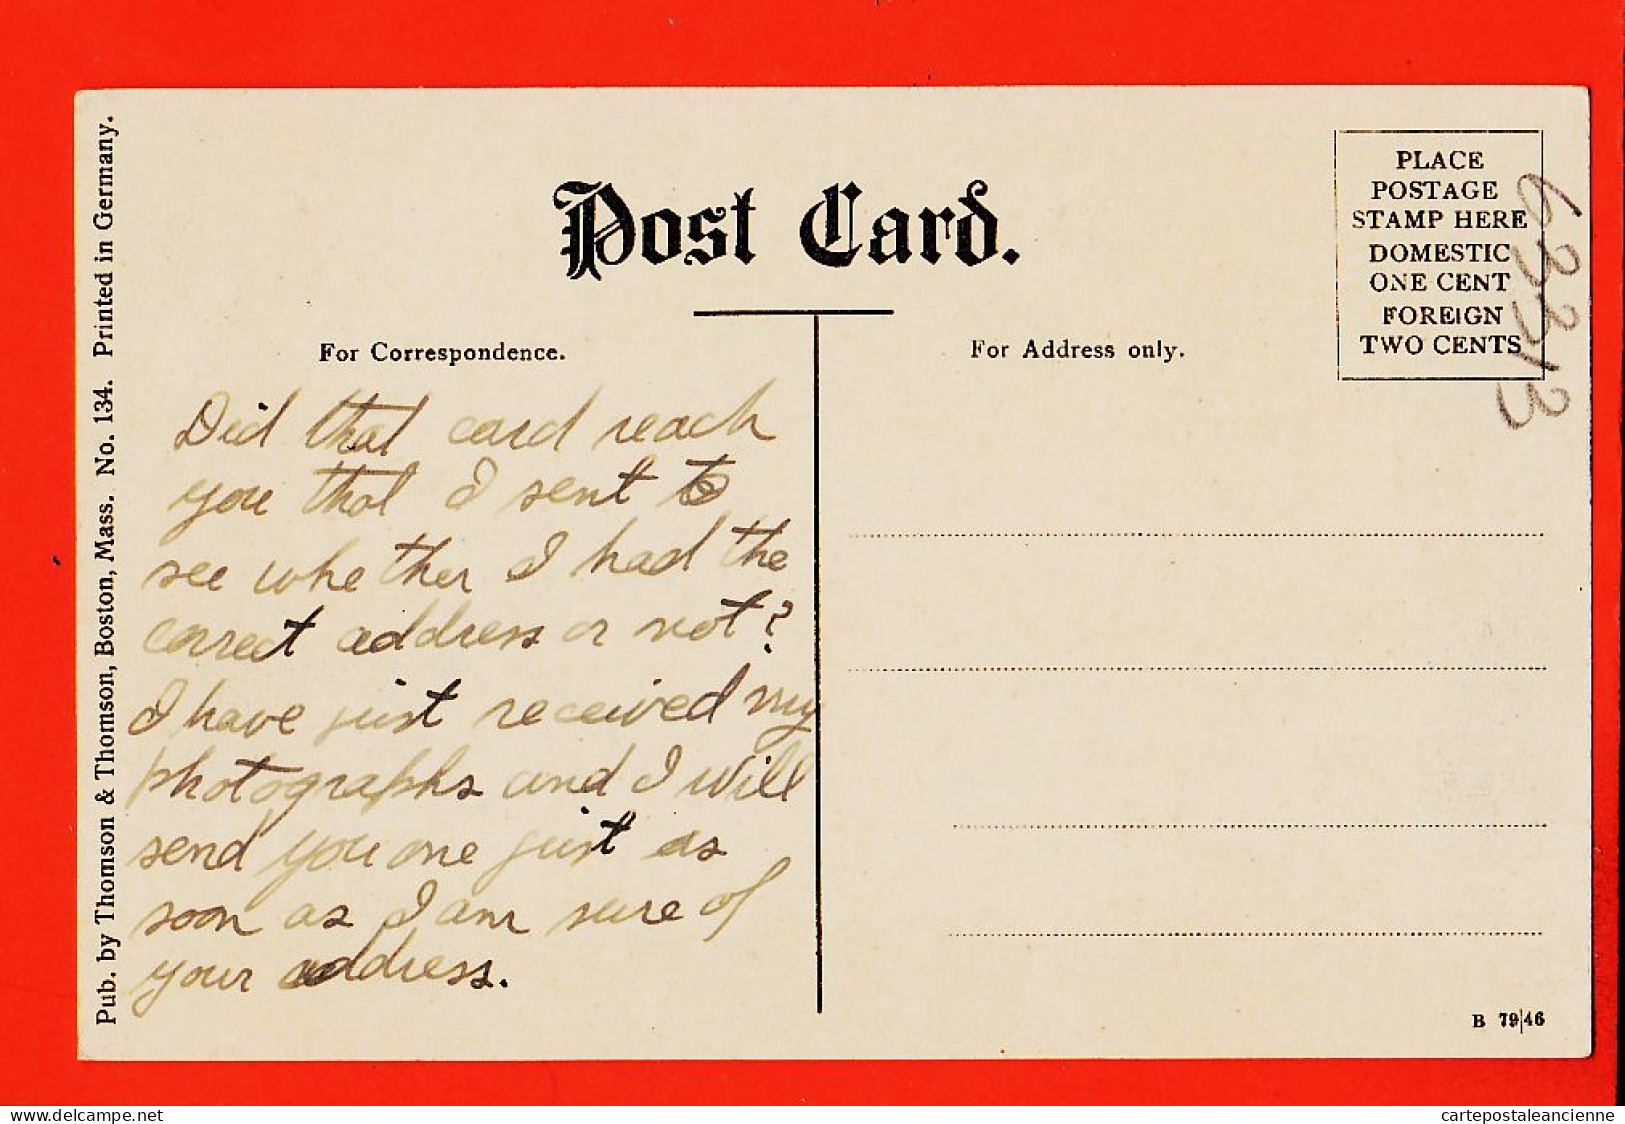 Post Card.
For Correspondence.
For Address only.
PLACE
POSTAGE
STAMP HERE
DOMESTIC
ONE CENT
FOREIGN
TWO CENTS
Did that card reach
you that I sent to
see whether I had the
correct address or not?
I have just received my
photographs and I will
send you one just as
soon as I am sure of
your address.
Pub. by Thomson & Thomson, Boston, Mass. No. 134. Printed in Germany.
B 79|46
delcampe.net
cartepostaleancienne